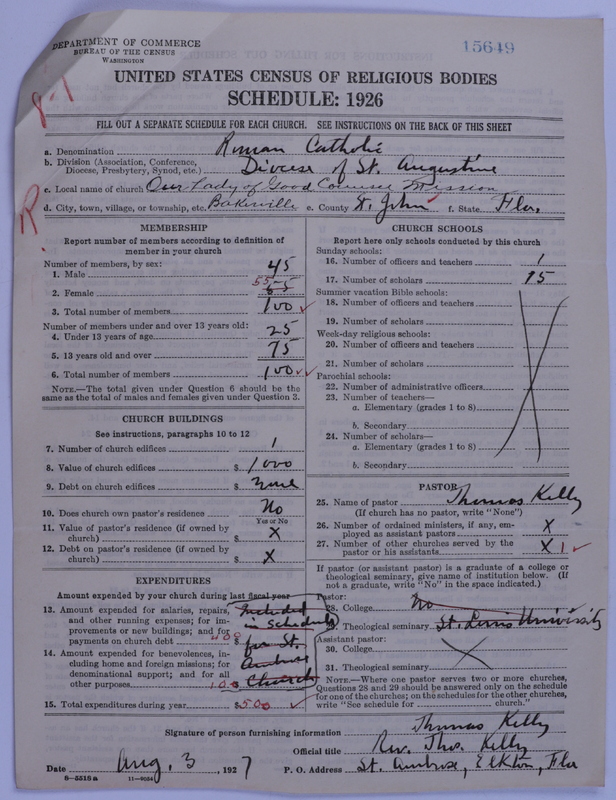 DEPARTMENT OF COMMERCE
BUREAU OF THE CENSUS
WASHINGTON
15649
UNITED STATES CENSUS OF RELIGIOUS BODIES
SCHEDULE: 1926
FILL OUT A SEPARATE SCHEDULE FOR EACH CHURCH. SEE INSTRUCTIONS ON THE BACK OF THIS SHEET
a. Denomination Roman Catholic
b. Division (Association, Conference, Diocese, Presbytery, Synod, etc.) Diocese of St. Augustine
c. Local name of church Our Lady of Good Counsel Mission
d. City, town, village, or township, etc. Bakersville e. County St. John f. State Fla.
MEMBERSHIP
Report number of members according to definition of
member in your church
Number of members, by sex:
1. Male 45
2. Female 55
3. Total number of members 100
Number of members under and over 13 years old:
4. Under 13 years of age 25
5. 13 years old and over 75
6. Total number of members 100
NOTE.—The total given under Question 6 should be
same as the total of males and females given under Question 3.
CHURCH BUILDINGS
See instructions, paragraphs 10 to 12
7. Number of church edifices 1
8. Value of church edifices $ 1000
9. Debt on church edifices $ none
10. Does church own pastor's residence No
Yes or No
11. Value of pastor's residence (if owned by
church) $ X
12. Debt on pastor's residence (if owned by
church) $ X
EXPENDITURES
Amount expended by your church during last fiscal year
13. Amount expended for salaries, repairs, Included
and other running expenses; for im- in Schedule
provements or new buildings; and for
payments on church debt 400 $ for St.
14. Amount expended for benevolences, Ambrose
including home and foreign missions; for
denominational support; and for all
other purposes 100 Church
15. Total expenditures during year $ 500
CHURCH SCHOOLS
Report here only schools conducted by this church
Sunday schools:
16. Number of officers and teachers 1
17. Number of scholars 15
Summer vacation Bible schools:
18. Number of officers and teachers
19. Number of scholars
Week-day religious schools:
20. Number of officers and teachers
21. Number of scholars
Parochial schools:
22. Number of administrative officers
23. Number of teachers—
a. Elementary (grades 1 to 8)
b. Secondary
24. Number of scholars—
a. Elementary (grades 1 to 8)
b. Secondary
PASTOR
25. Name of pastor Thomas Kelly
(If church has no pastor, write "None")
26. Number of ordained ministers, if any, em-
ployed as assistant pastors X
27. Number of other churches served by the
pastor or his assistants X 1
If pastor (or assistant pastor) is a graduate of a college or
theological seminary, give name of institution below. (If
not a graduate, write "No" in the space indicated.)
Pastor:
28. College No
29. Theological seminary St. Louis University
Assistant pastor:
30. College
31. Theological seminary
NOTE.—Where one pastor serves two or more churches,
Questions 28 and 29 should be answered only on the schedule
for one of the churches; on the schedules for the other churches,
write "See schedule for church."
Signature of person furnishing information Thomas Kelly
Official title Rev. Thos. Kelly
Date Aug. 3, 1927 P. O. Address St. Ambrose, Elkton, Fla
8-5515a 11-9034